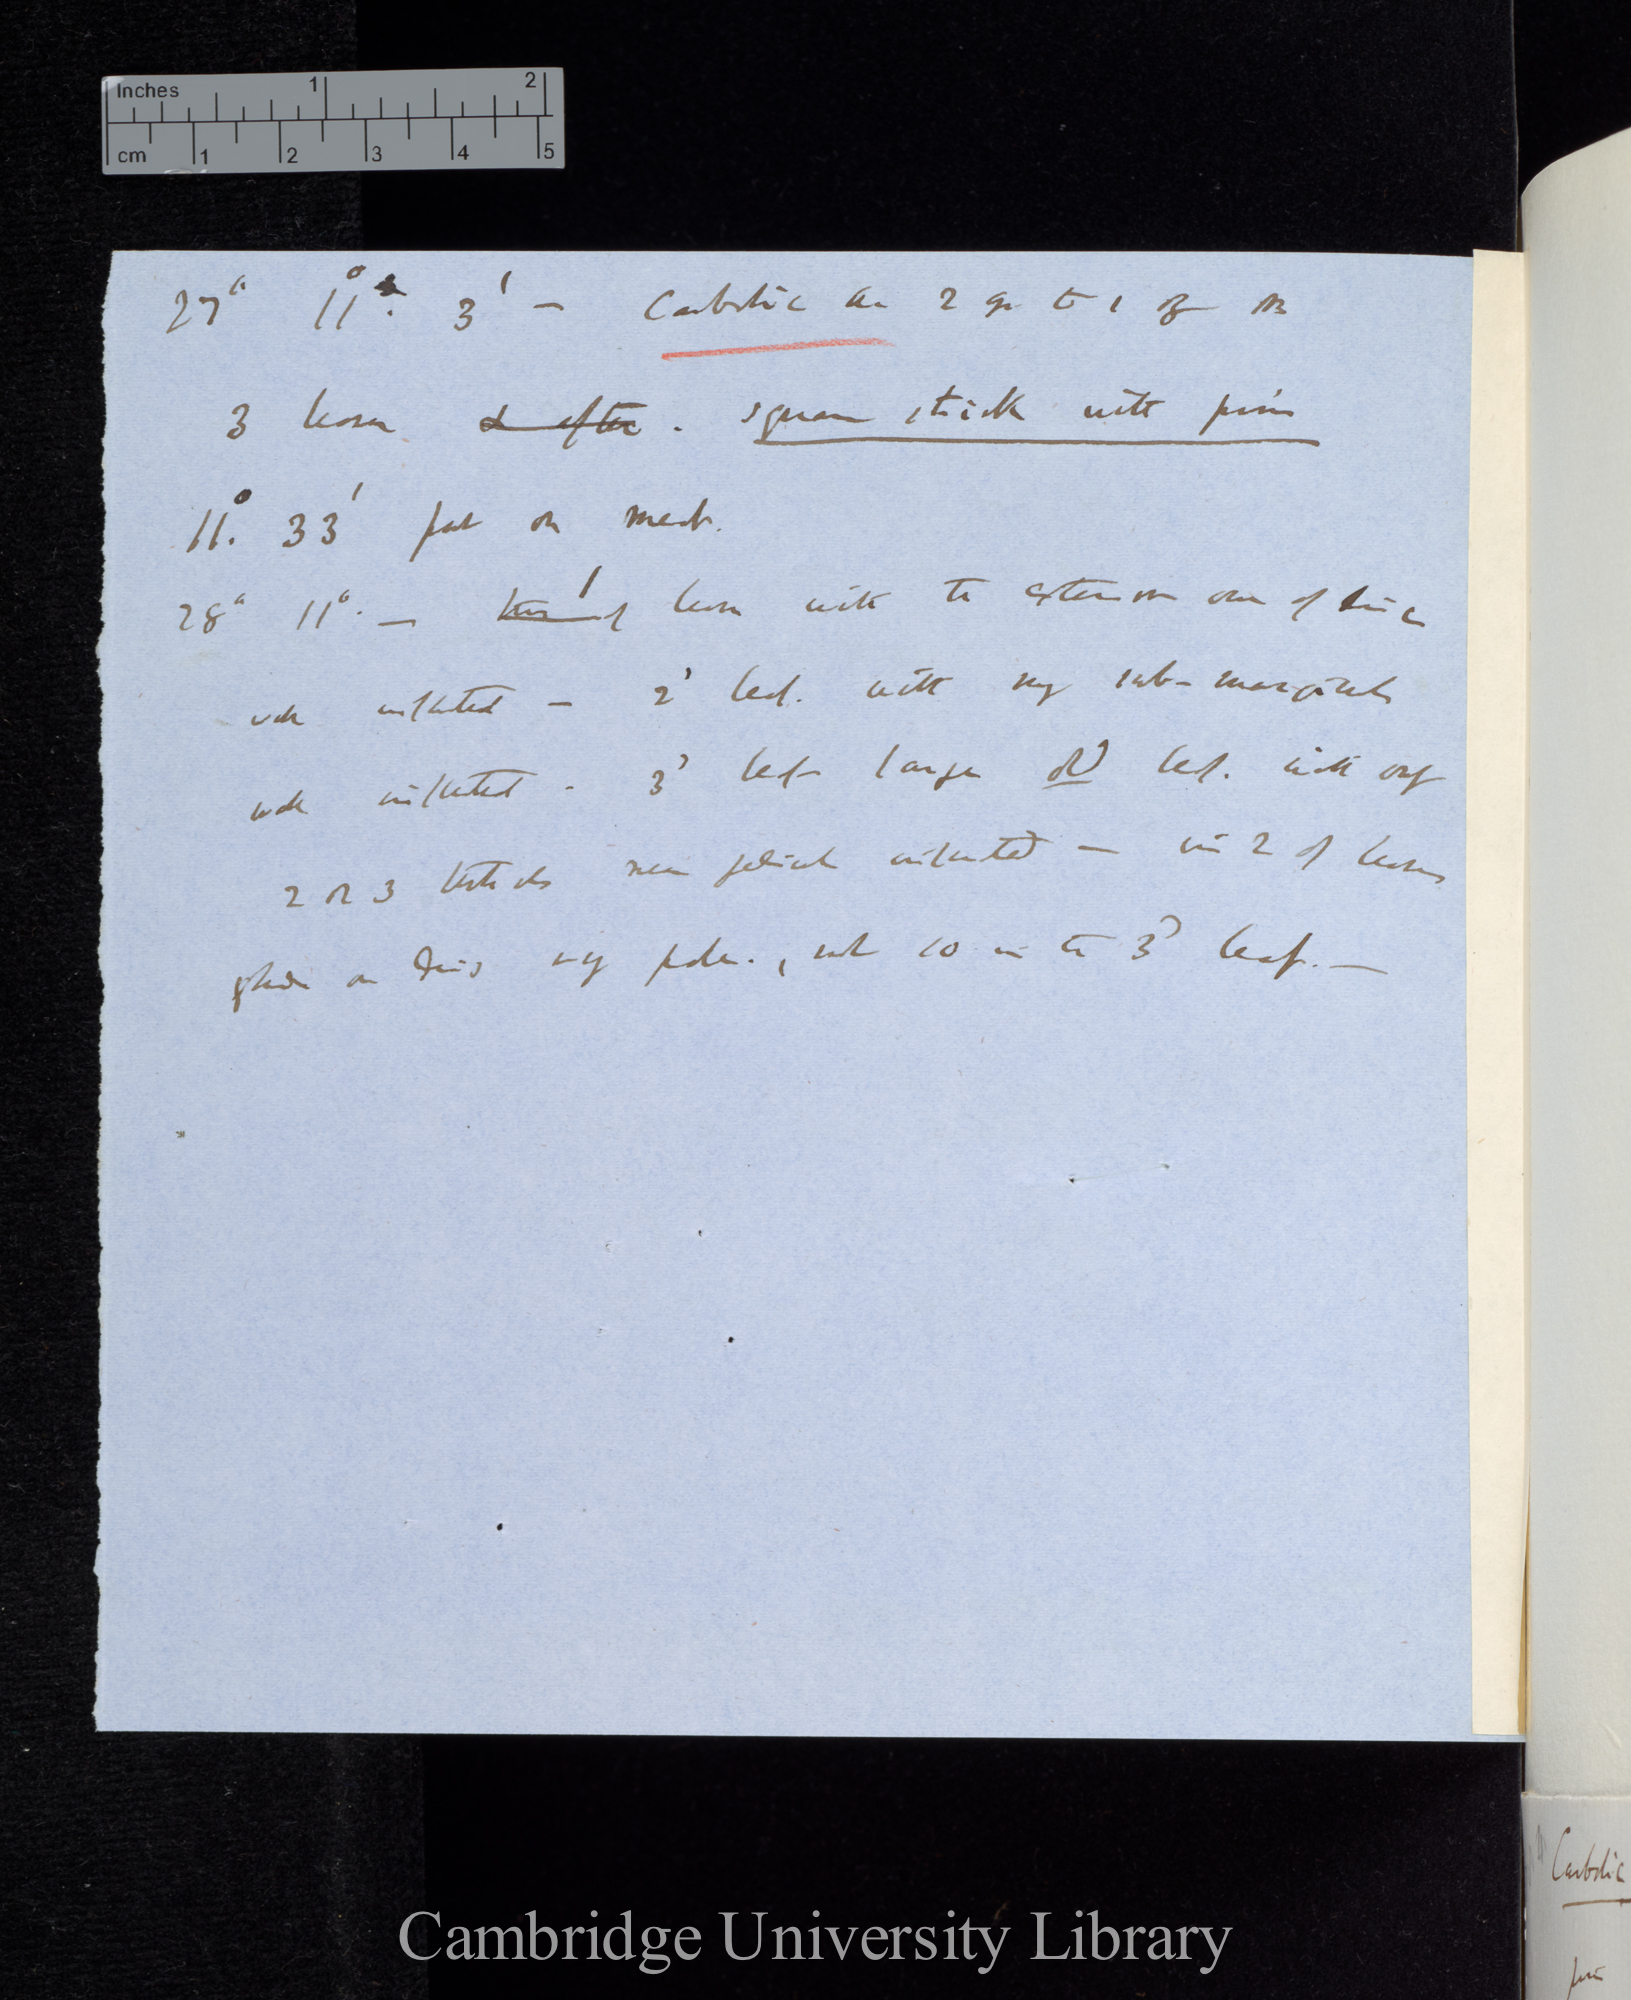 Inches 1 2
cm 1 2 3 4 5
27° 11°. 3' — Carbolic Ac 2 gr to 1 oz
3 leaves & after. square stick with pin
11°. 33' put on meat.
28° 11°. — 1 of leaves with the extension one of
well inflected — 2' leaf. with my sub-marginals
well inflected. 3' leaf large old leaf. with only
2 or 3 tentacles near inflected — in 2 of leaves
glands on disc very pale., not so in the 3' leaf. —
Carbolic
pin
Cambridge University Library